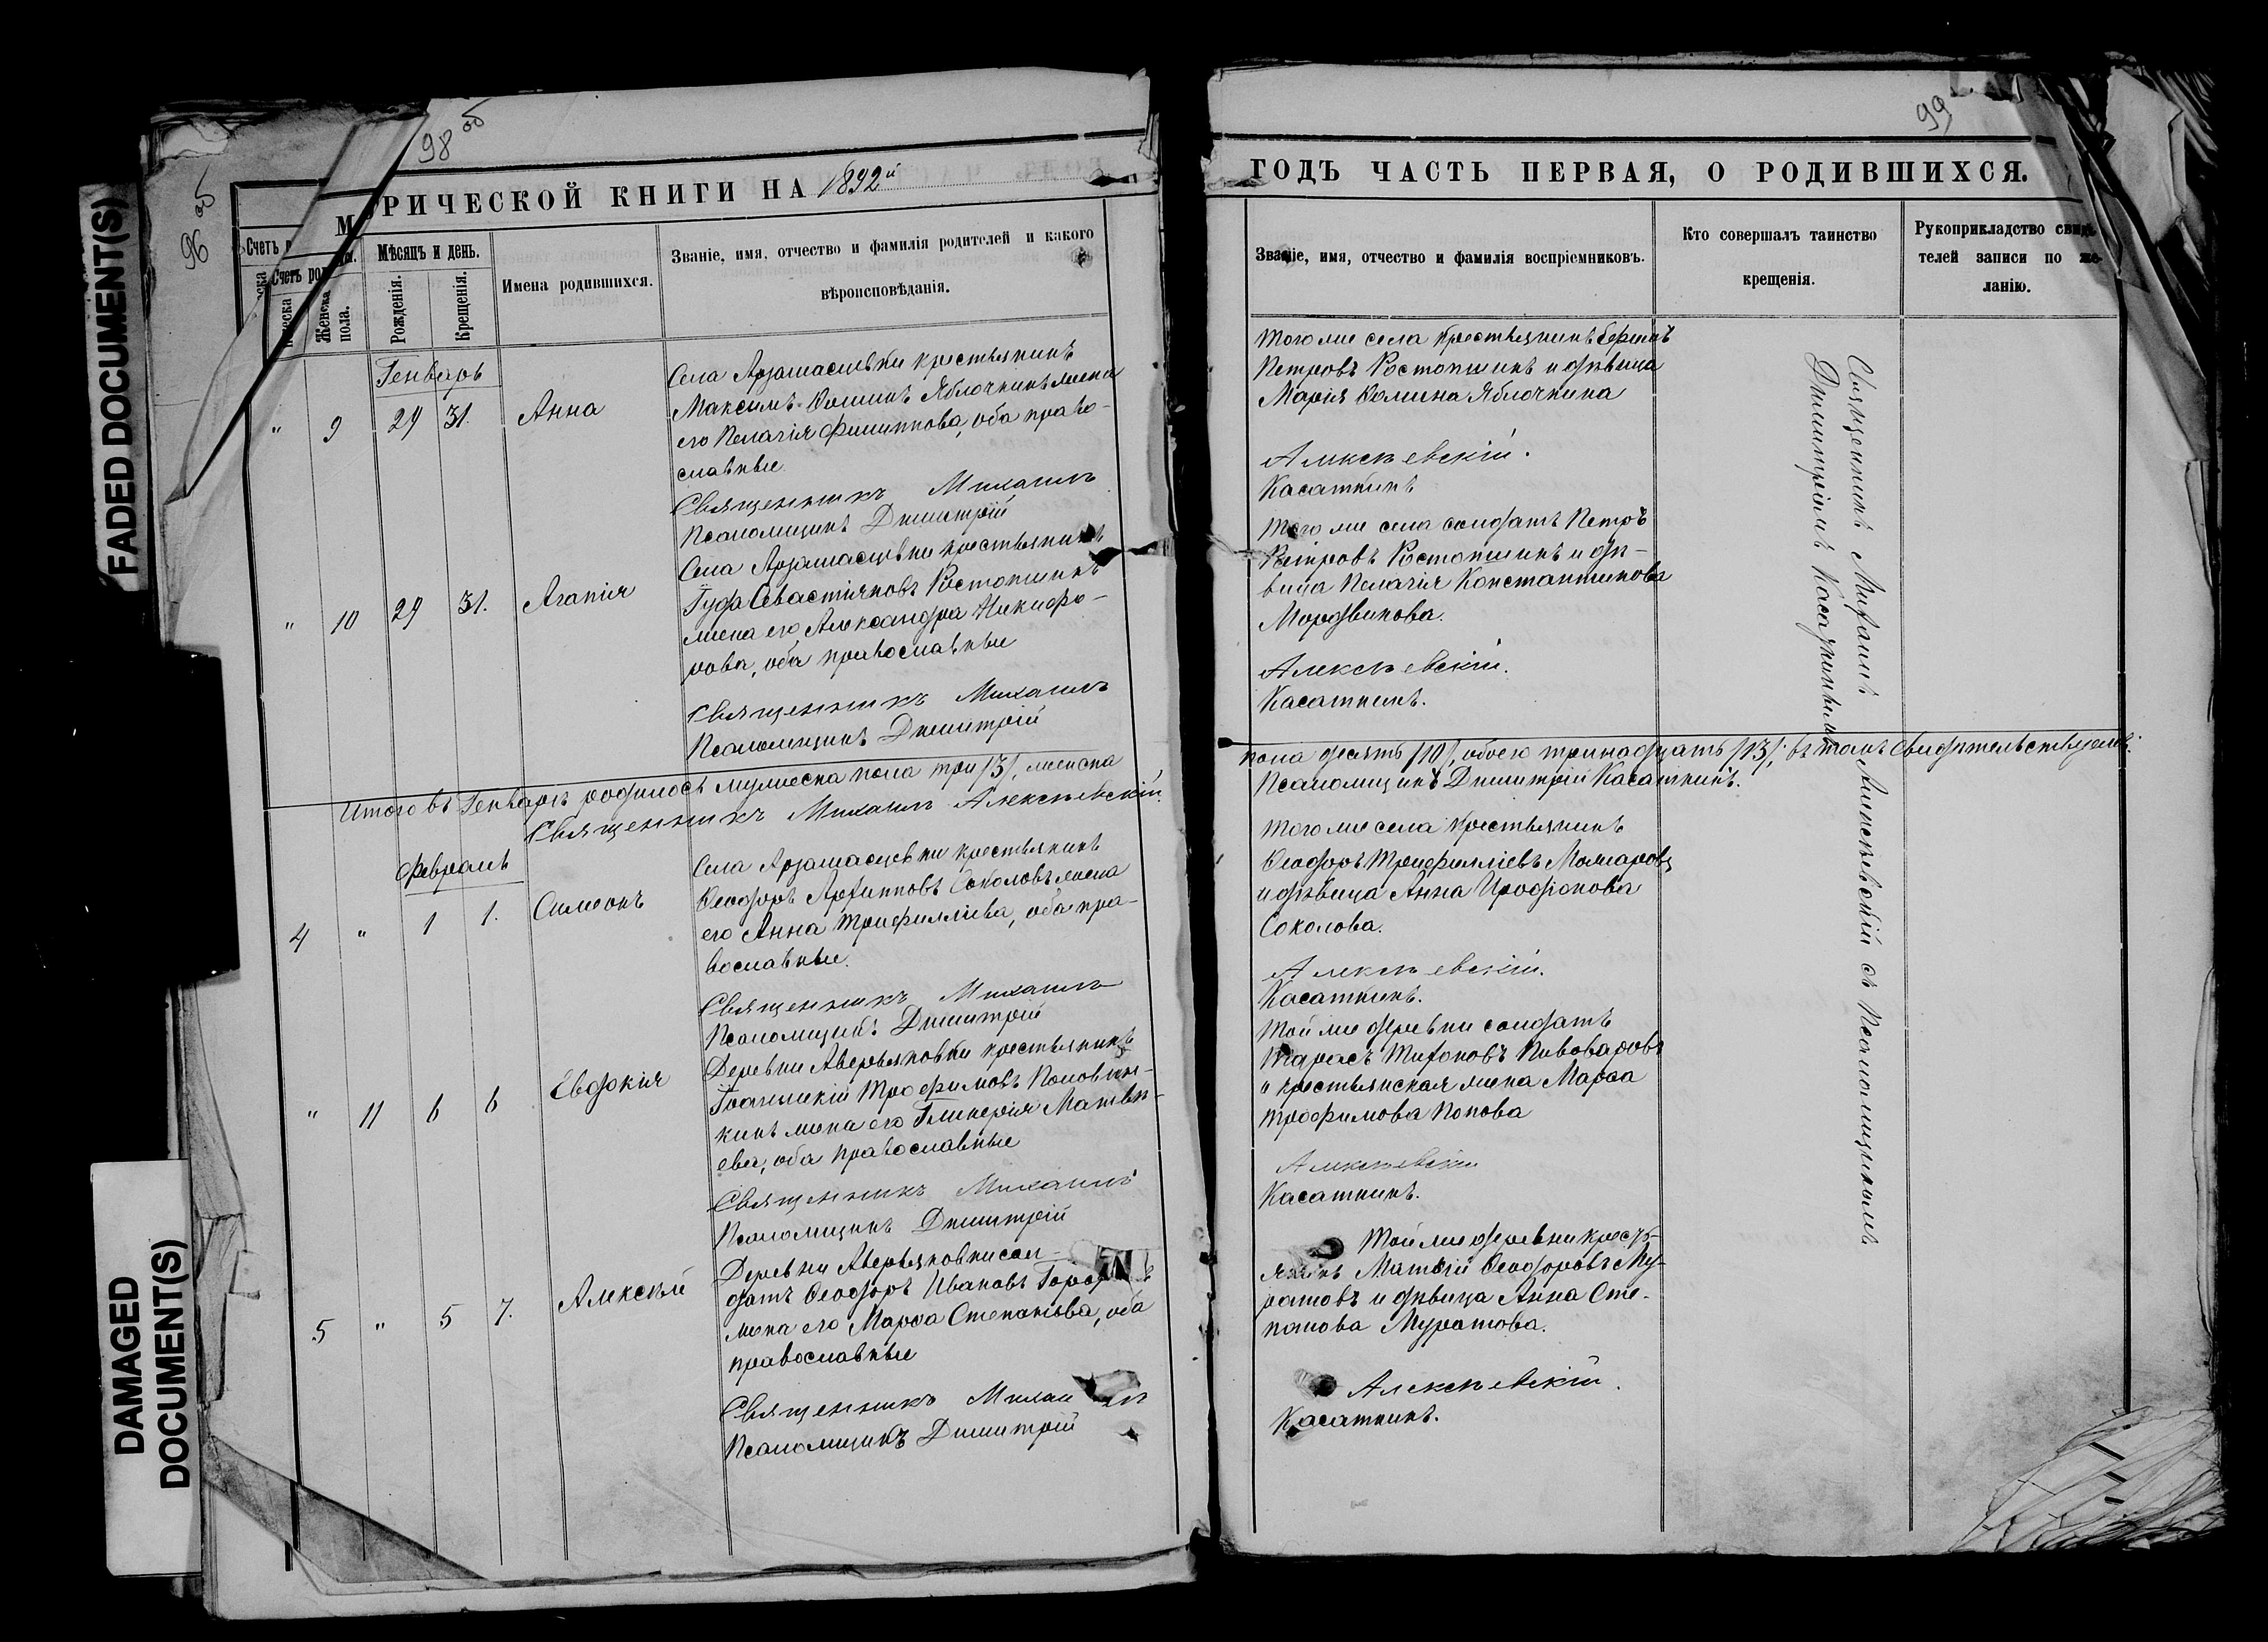 FADED DOCUMENT(S)
DAMAGED
DOCUMENT(S)
96 об
98 об
МѢРИЧЕСКОЙ КНИГИ НА 1892й
Счетъ род
Мѣсяцъ и день.
Женска
пола.
Рожденія.
Крещенія.
Имена родившихся.
Званіе, имя, отчество и фамилія родителей и какого
вѣроисповѣданія.
Генварь
" 9 29 31. Анна
Села Арзамасцевки крестьянинъ
Максимъ Ѳоминъ Яблочкинъ жена
его Пелагія Филиппова, оба право-
славные
Священникъ Михаилъ
Псаломщикъ Димитрій
" 10 29 31. Агапія
Села Арзамасцевки крестьянинъ
Іуда Севастіяновъ Ростопшинъ
жена его Александра Никифо-
рова, оба православные
Священникъ Михаилъ
Псаломщикъ Димитрій
Итого въ Генварѣ родилось мужеска пола три /3/, женска
Священникъ Михаилъ Алексѣевскій
Февраль
4 " 1 1. Симеонъ
Села Арзамасцевки крестьянинъ
Ѳеодоръ Архипповъ Соколовъ жена
его Анна Трифилліева, оба пра-
вославные.
Священникъ Михаилъ
Псаломщикъ Димитрій
" 11 6 6 Евдокія
Деревни Аверьяновки крестьянинъ
Іоанникій Трофимовъ
кинъ жена его Гликерія Матвѣ-
ева, оба православные
Священникъ Михаилъ
Псаломщикъ Димитрій
5 " 5 7. Алексѣй
Деревни Аверьяновки сол-
датъ Ѳеодоръ Ивановъ
жена его Марѳа Степанова, оба
православные
Священникъ Михаилъ
Псаломщикъ Димитрій
99
ГОДЪ ЧАСТЬ ПЕРВАЯ, О РОДИВШИХСЯ.
Званіе, имя, отчество и фамилія воспріемниковъ.
Кто совершалъ таинство
крещенія.
Рукоприкладство свидѣ-
телей записи по же-
ланію.
Того же села крестьянинъ
Петровъ Ростопшинъ и дѣвица
Марія Ѳомина Яблочкина
Алексѣевскій.
Касаткинъ
Того же села солдатъ Петръ
Петровъ Ростопшинъ и дѣ-
вица Пелагія Константинова
Мордвинова.
Алексѣевскій.
Касаткинъ.
пола десять /10/, обоего тринадцать /13/; въ томъ свидѣтельствуемъ:
Псаломщикъ Димитрій Касаткинъ.
Того же села крестьянинъ
Ѳеодоръ Трифилліевъ Можаровъ
и дѣвица Анна Иродіонова
Соколова.
Алексѣевскій.
Касаткинъ.
Той же деревни солдатъ
Тарасъ Тихоновъ Пивоваровъ
и крестьянская жена Марѳа
Трофимова Попова
Алексѣевскій
Касаткинъ.
Той же деревни кресть-
янинъ Матвѣй Ѳеодоровъ Му-
ратовъ и дѣвица Анна Сте-
панова Муратова.
Алексѣевскій.
Касаткинъ.
Священникъ Михаилъ Алексѣевскій съ Псаломщикомъ
Димитріемъ Касаткинымъ